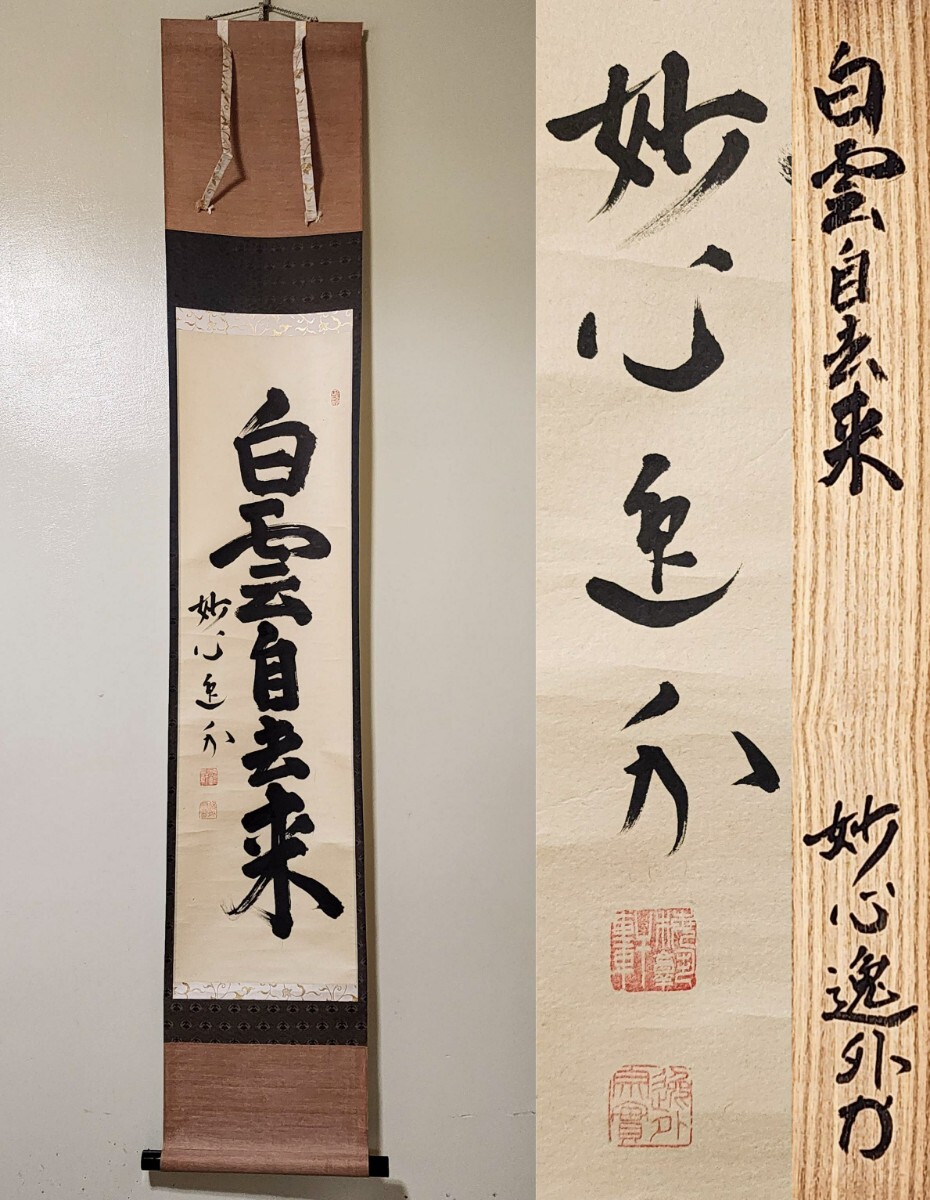 白雲自去来
妙心逸外
妙心逸外
逸外
宗實
白雲自去来
妙心逸外